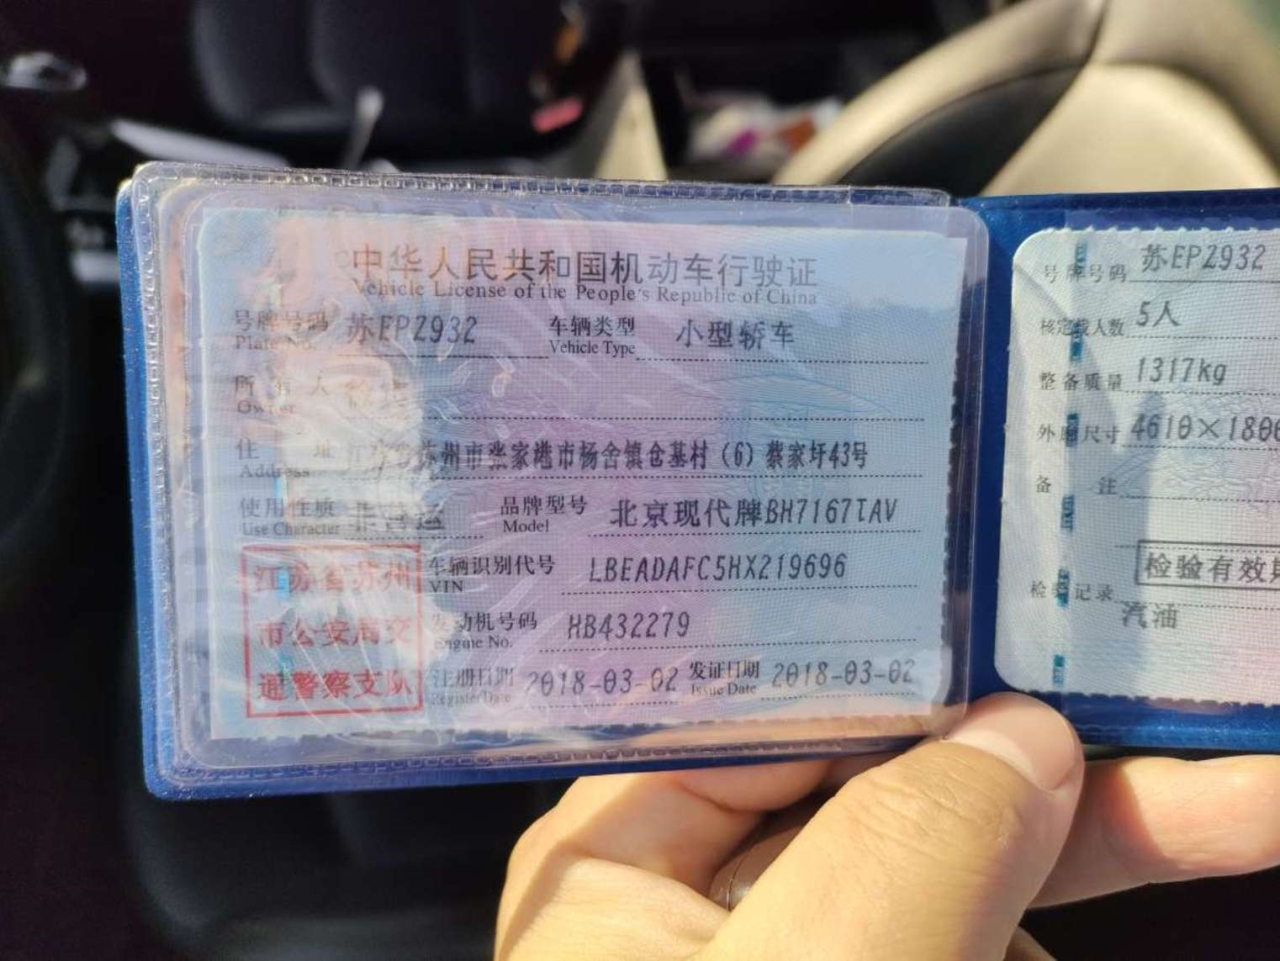 中华人民共和国机动车行驶证
Vehicle License of the People's Republic of China
号牌号码 苏EPZ932 车辆类型 小型轿车
Plate No. Vehicle Type
所 人
Owner
住 址 苏州市张家港市杨舍镇仓基村(6)蔡家圩43号
Address
使用性质 非营运 品牌型号 北京现代牌BH7167TAV
Use Character Model
江苏省苏州
市公安局交
通警察支队
车辆识别代号 LBEADAFC5HX219696
VIN
发动机号码 HB432279
Engine No.
注册日期 2018-03-02 发证日期 2018-03-02
Register Date Issue Date
号牌号码 苏EPZ932
核定载人数 5人
整备质量 1317kg
外廓尺寸 4610×1800
备 注
检验有效期
检验记录
汽油